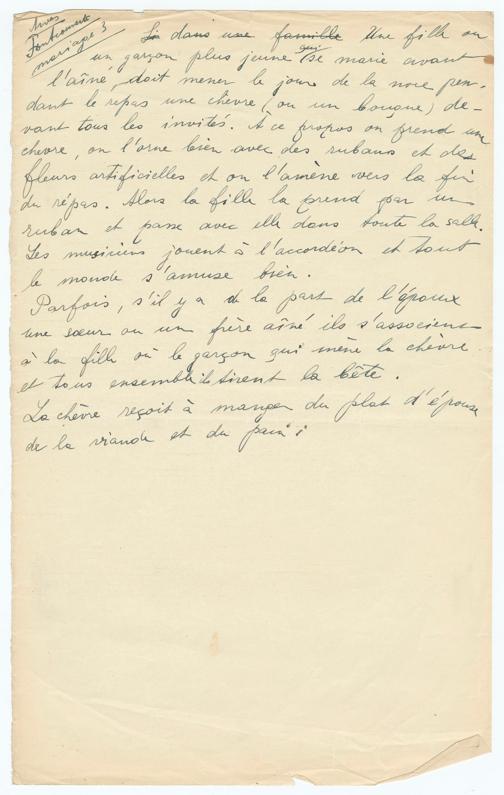 Arves
Fontcouverte
mariage 3
Si dans une famille Une fille ou
un garçon plus jeune qui se marie avant
l'aîné, doit mener le jour de la noce pen-
dant le repas une chèvre (ou un bouque) de-
vant tous les invités. À ce propos on prend une
chèvre, on l'orne bien avec des rubans et des
fleurs artificielles et on l'amène vers la fin
du répas. Alors la fille la prend par un
ruban et passe avec elle dans toute la salle.
Les musiciens jouent à l'accordéon et tout
le monde s'amuse bien.
Parfois, s'il y a de la part de l'époux
une sœur ou un frère aîné ils s'associent
à la fille où le garçon qui mène la chèvre
et tous ensemble ils tirent la bête.
La chèvre reçoit à manger du plat d'épouse
de la viande et du pain